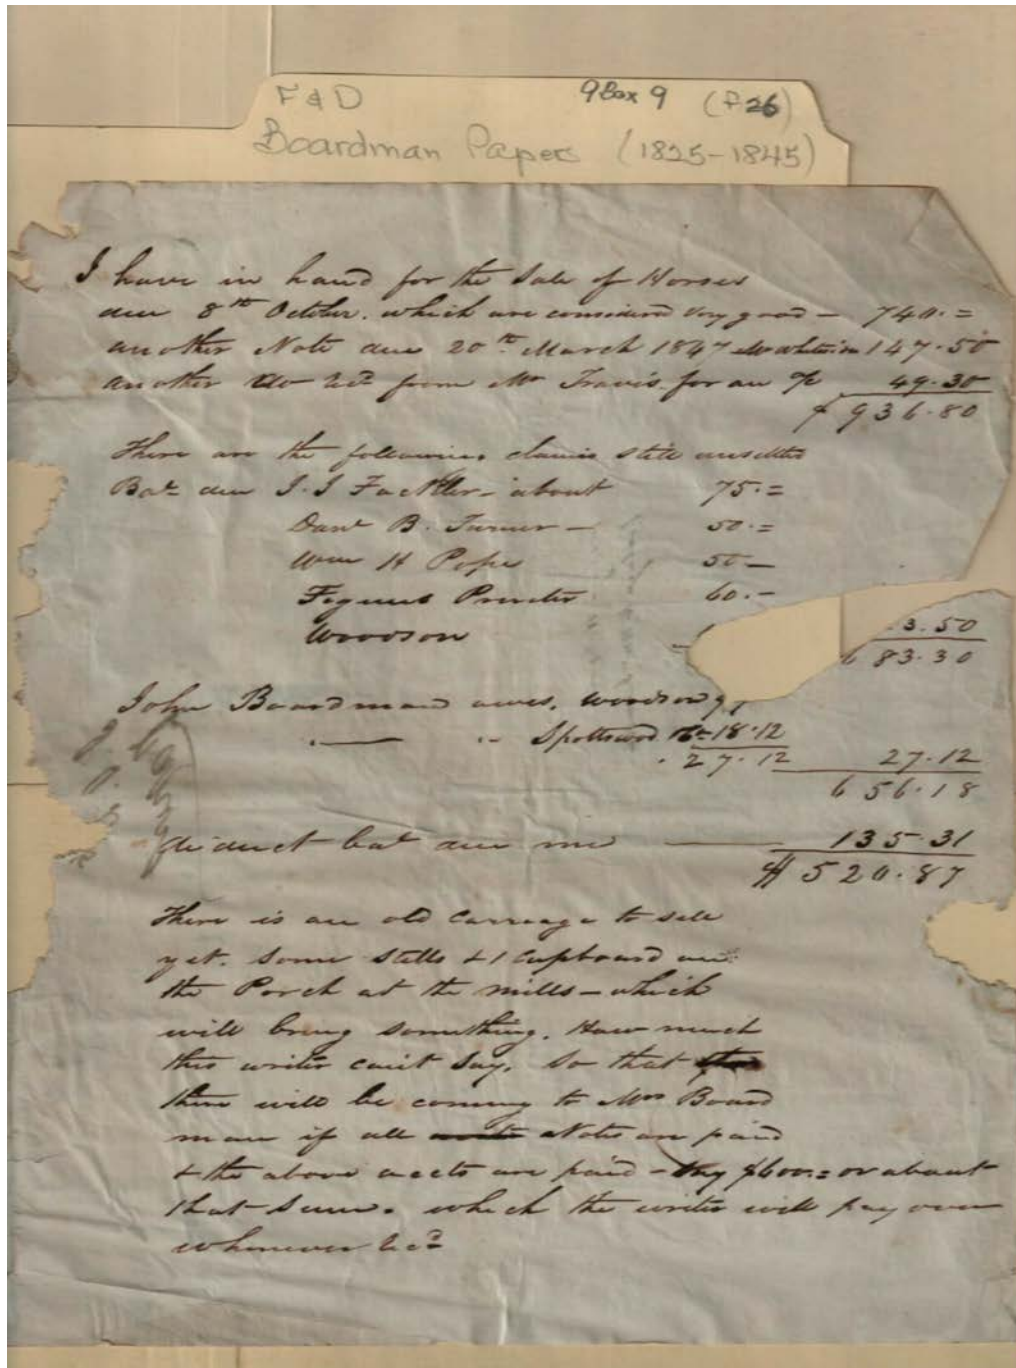 F & D 9 Box 9 (F 26)
Boardman Papers (1825-1845)
I have in hand for the Sale of Horses
due 8th October. which are considered very good - 740.=
another Note due 20th March 1847 147.50
another do recd from Mr Travis for an a/c 49.30
$ 936.80
There are the following claims still unsettled
Bal due J. J Fackler - about 75.=
Danl B. Turner - 50.=
Wm H Pope 50 -
Figures Procter 60.-
Woodson
3.50
683.30
John Boardman owes, Woodson 9,
" Spottswood 18.12
27.12 27.12
656.18
deduct bal due me 135.31
$ 520.87
There is an old Carriage to sell
yet. some stills & 1 Cupboard on
the Porch at the mills - which
will bring something. How much
this writer can't say. So that
there will be coming to Mrs Board
man if all Notes are paid
& the above accts are paid - say $600.= or about
that sum. which the writer will pay over
whenever recd